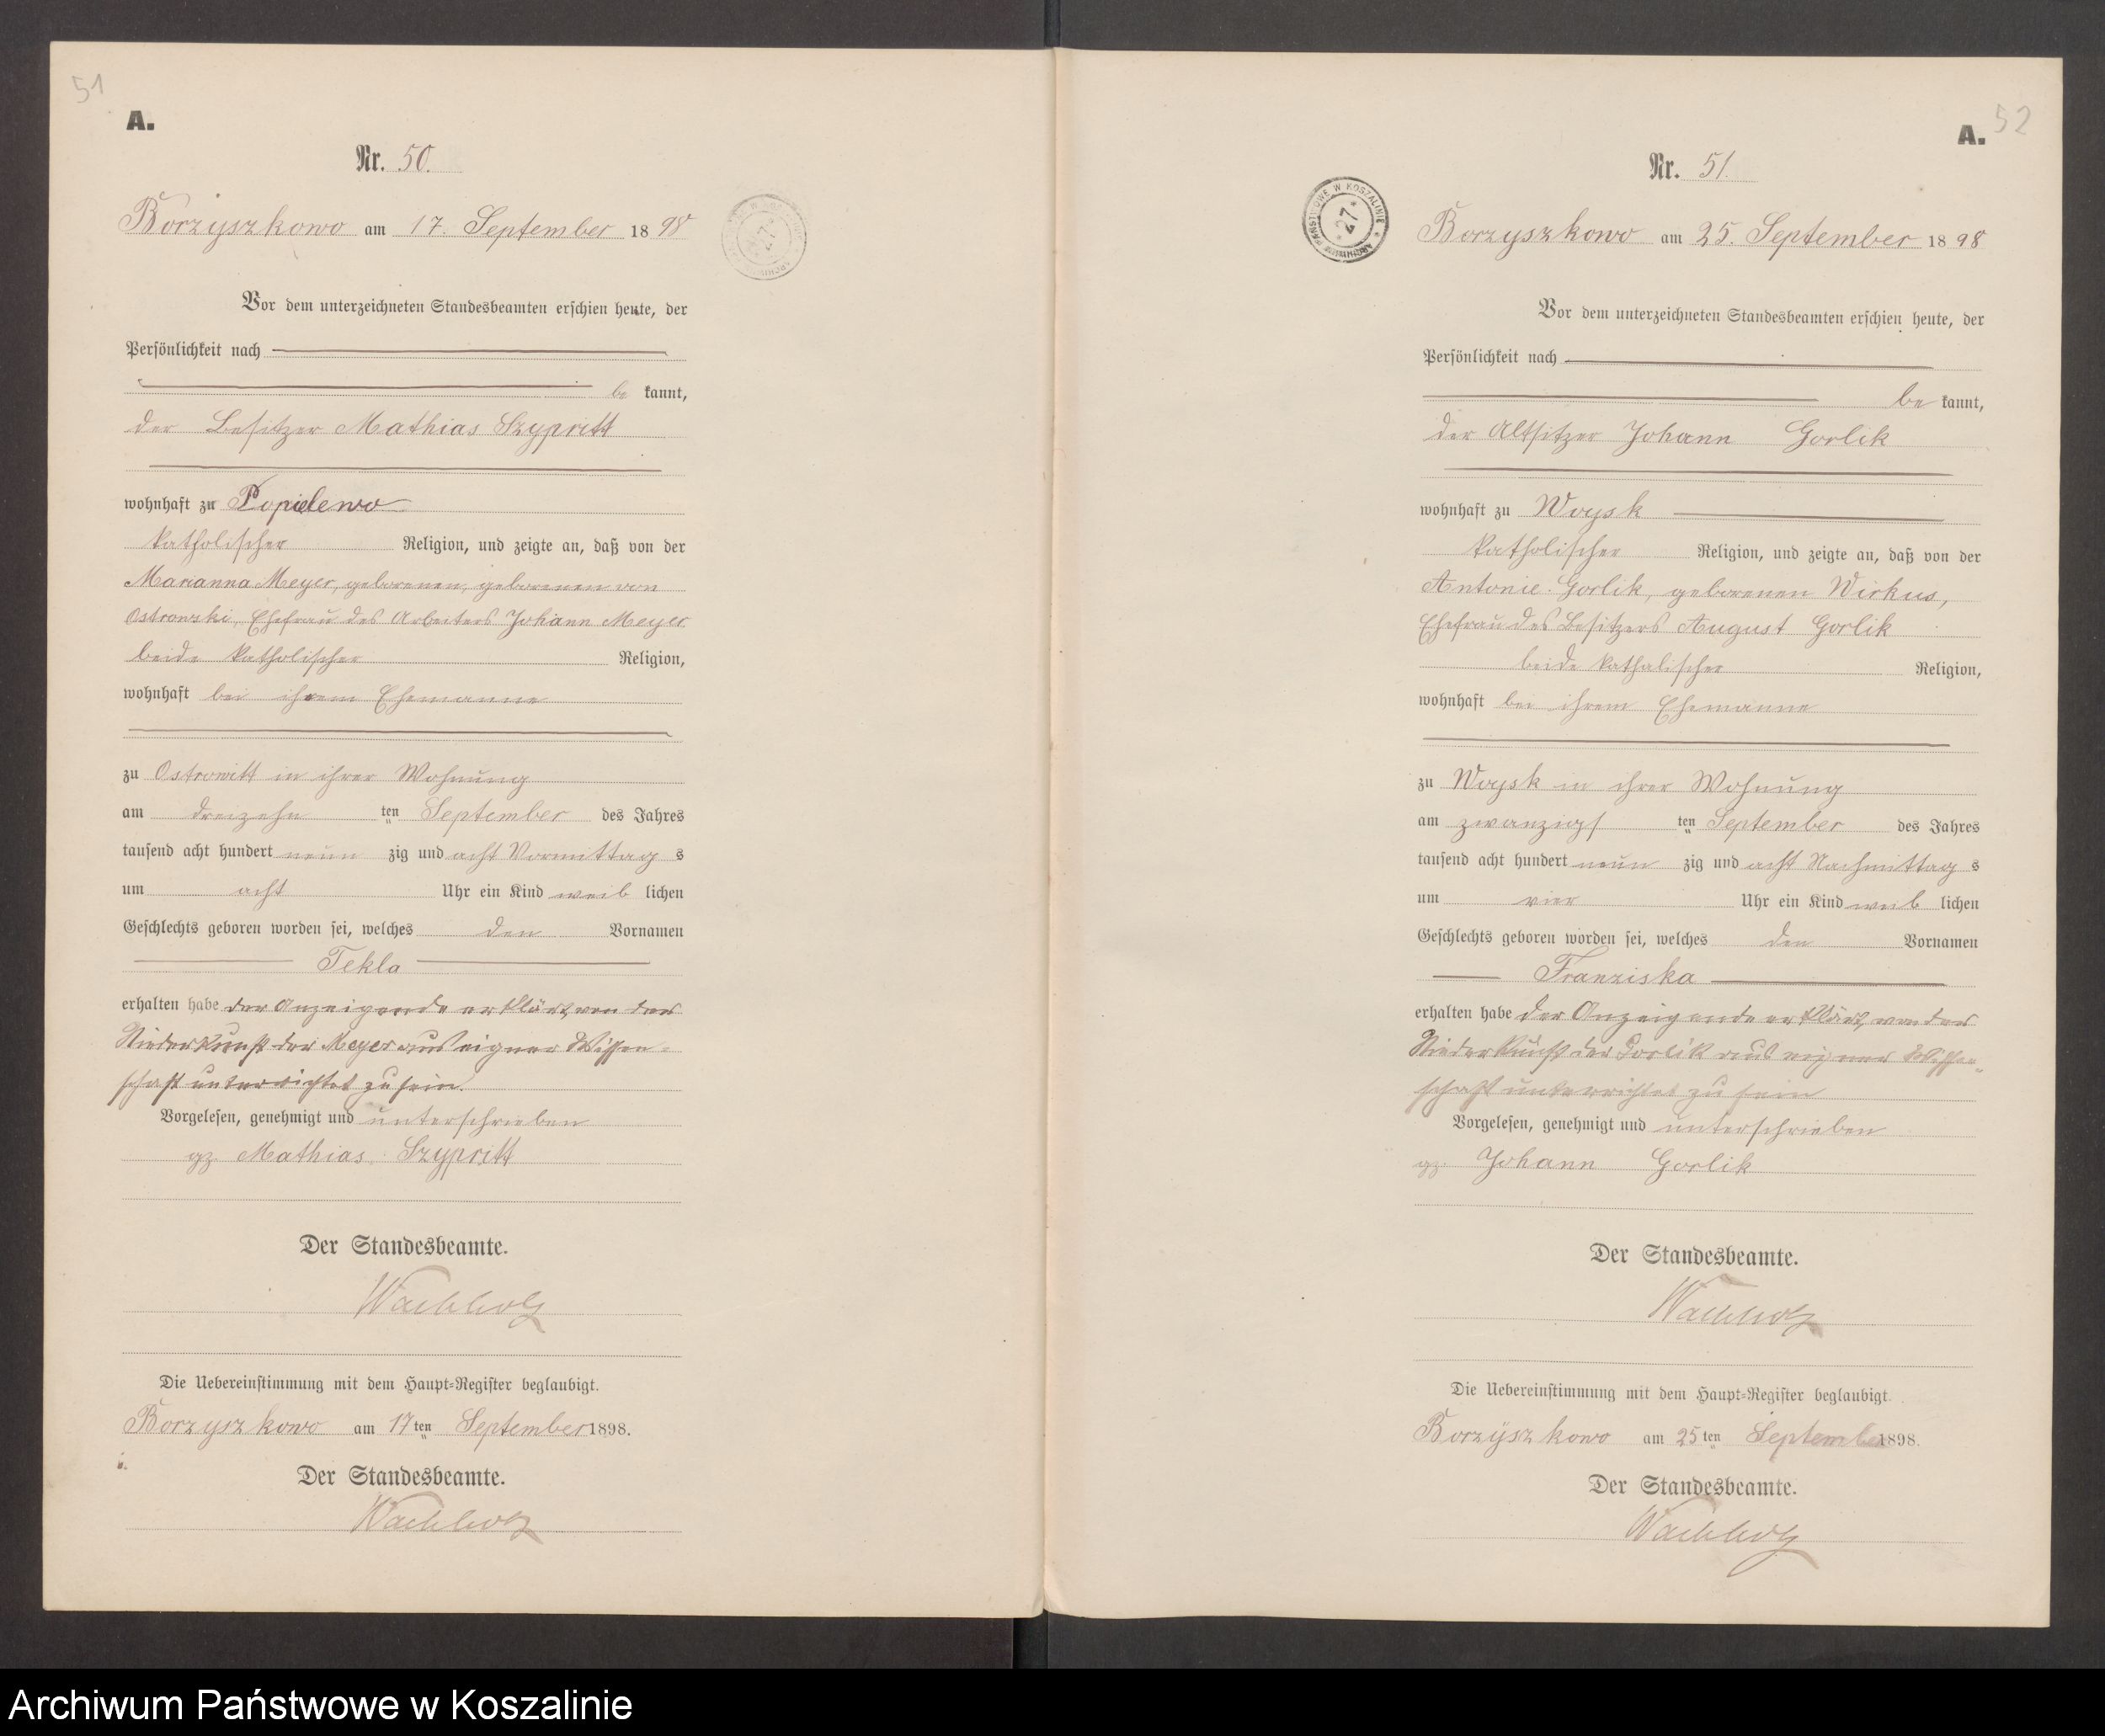 51
A.
Nr. 50.
Borzyszkowo am 17. September 1898
Vor dem unterzeichneten Standesbeamten erschien heute, der
Persönlichkeit nach
be kannt,
der Besitzer Mathias Szypritt
wohnhaft zu Popielewo
katholischer Religion, und zeigte an, daß von der
Marianna Meyer, geborenen, geborenen von
Ostrowski, Ehefrau des Arbeiters Johann Meyer
beide katholischer Religion,
wohnhaft bei ihrem Ehemanne
zu Ostrowitt in ihrer Wohnung
am dreizehn ten September des Jahres
tausend acht hundert neun zig und acht Vormittag s
um acht Uhr ein Kind weib lichen
Geschlechts geboren worden sei, welches den Vornamen
Tekla
erhalten habe der Anzeigende erklärt, von der
Niederkunft der Meyer aus eigner Wissen-
schaft unterrichtet zu sein.
Vorgelesen, genehmigt und unterschrieben
gz. Mathias Szypritt
Der Standesbeamte.
Wachholz
Die Uebereinstimmung mit dem Haupt-Register beglaubigt.
Borzyszkowo am 17ten September 1898.
Der Standesbeamte.
Wachholz
52
A.
Nr. 51.
ARCHIWUM PAŃSTWOWE W KOSZALINIE * 27 *
Borzyszkowo am 25. September 1898
Vor dem unterzeichneten Standesbeamten erschien heute, der
Persönlichkeit nach
be kannt,
der Altsitzer Johann Gorlik
wohnhaft zu Woysk
katholischer Religion, und zeigte an, daß von der
Antonie Gorlik, geborenen Wirkus,
Ehefrau des Besitzers August Gorlik
beide katholischer Religion,
wohnhaft bei ihrem Ehemanne
zu Woysk in ihrer Wohnung
am zwanzigs ten September des Jahres
tausend acht hundert neun zig und acht Nachmittag s
um vier Uhr ein Kind weib lichen
Geschlechts geboren worden sei, welches den Vornamen
Franziska
erhalten habe der Anzeigende erklärt, von der
Niederkunft der Gorlik aus eigner Wissen-
schaft unterrichtet zu sein
Vorgelesen, genehmigt und unterschrieben
gz. Johann Gorlik
Der Standesbeamte.
Wachholz
Die Uebereinstimmung mit dem Haupt-Register beglaubigt.
Borzyszkowo am 25ten September 1898.
Der Standesbeamte.
Wachholz
Archiwum Państwowe w Koszalinie